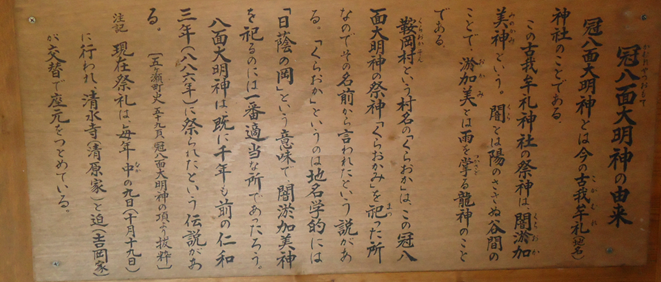 冠八面大明神の由来
冠八面大明神とは今の古我牟礼(地名)
神社のことである。
この古我牟礼神社の祭神は、闇淤加
美神という。闇とは陽のささぬ谷間の
ことで、淤加美とは雨を掌る龍神のこと
である。
鞍岡村という村名の「くらおか」は、この冠八
面大明神の祭神「くらおかみ」を祀った所
なのでその名前から言われたという説があ
る。「くらおか」というのは地名学的には
「日蔭の岡」という意味で、闇淤加美神
を祀るのには一番適当な所であったろう。
八面大明神は既に千年も前の仁和
三年(八八六年)に祭られたという伝説があ
る。
[五ヶ瀬町史五十九頁冠八面大明神の項より抜粋]
注記 現在祭礼は、毎年中の九日(十月十九日)
に行われ、清水寺(清原家)と迫(吉岡家)
が交替で座元をつとめている。